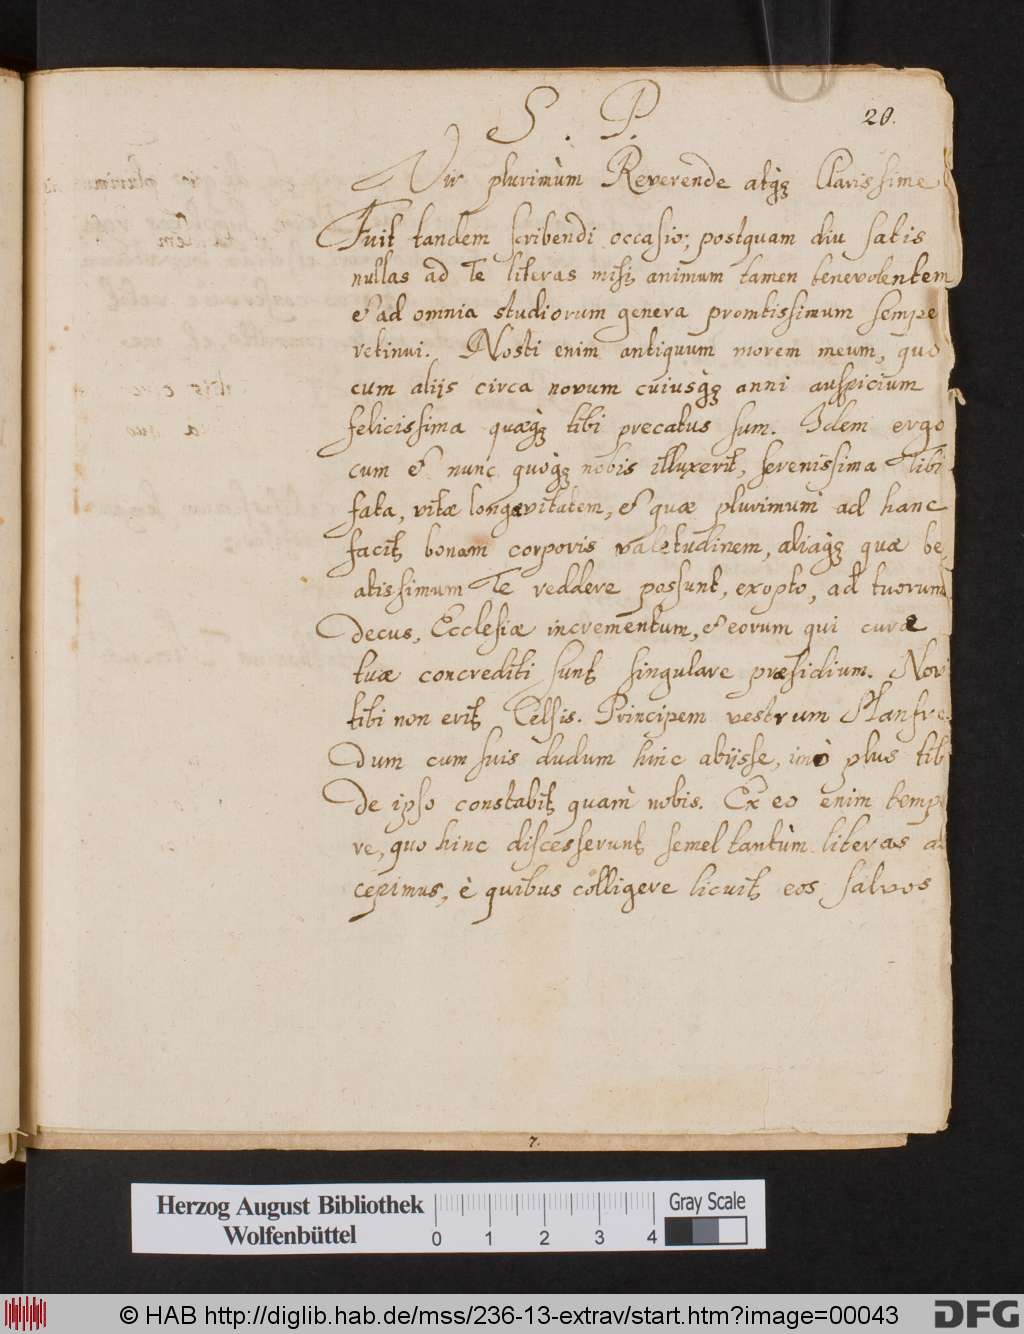 S. P.
20.
Vir plurimùm Reverende atq́ꝫ Clarissime
Fuit tandem scribendi occasio; postquam diu satis
nullas ad Te literas misi, animum tamen benevolentem
& ad omnia studiorum genera promtissimum sempe
retinui. Nosti enim antiquum morem meum, quo
cum alijs circa novum cuiusq́ꝫ anni auspicium
felicissima quæq́ꝫ tibi precatus sum. Idem ergo
cum & nunc quoq́ꝫ nobis illuxerit, serenissima Tibi
fata, vitæ longævitatem, & quæ plurimum ad hanc
facit, bonam corporis valetudinem, aliaq́ꝫ quæ be,
atissimum Te reddere possunt, exopto, ad tuorum
Decus, Ecclesiæ incrementum, & eorum qui curæ
tuæ concrediti sunt singulare præsidium. Nov
tibi non erit, Celsis. Principem vestrum Manfre
dum cum suis dudum hinc abijsse, imò plus tib
de ipso constabit, quam nobis. Ex eo enim temp
re, quo hinc discesserunt semel tantùm literas a
cepimus, è quibus colligere licuit, eos salvos
7.
Herzog August Bibliothek
Wolfenbüttel
0 1 2 3 4
Gray Scale
© HAB http://diglib.hab.de/mss/236-13-extrav/start.htm?image=00043
DFG